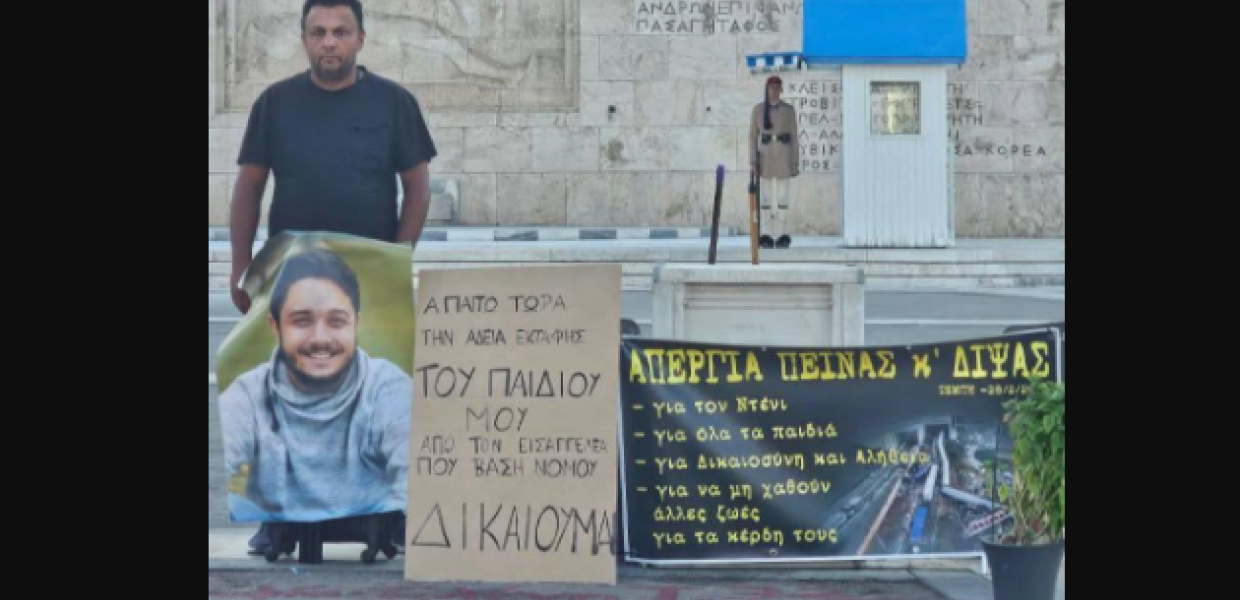 ΑΝΔΡΩΝΕΠΙΦΑΝ
ΠΑΣΑΓΗΤΑΦΟΣ
ΚΛΕΙΣ
ΣΑ-ΚΟΡΕΑ
ΑΠΑΙΤΟ ΤΩΡΑ
ΤΗΝ ΑΔΕΙΑ ΕΚΤΑΦΗΣ
ΤΟΥ ΠΑΙΔΙΟΥ
ΜΟΥ
ΑΠΟ ΤΟΝ ΕΙΣΑΓΓΕΛΕΑ
ΠΟΥ ΒΑΣΗ ΝΟΜΟΥ
ΔΙΚΑΙΟΥΜΑΙ
ΑΠΕΡΓΙΑ ΠΕΙΝΑΣ κ' ΔΙΨΑΣ
ΤΕΜΠΗ -28/2/
- για τον Ντένι
- για όλα τα παιδιά
- για Δικαιοσύνη και Αλήθεια
- για να μη χαθούν
άλλες ζωές
για τα κέρδη τους